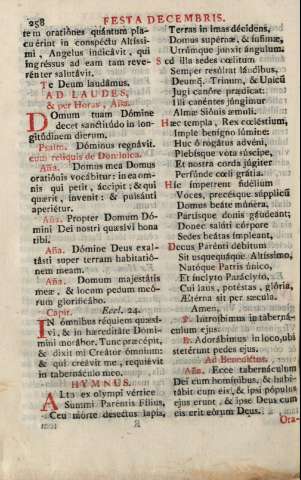 258 FESTA DECEMBRIS.
tem orationes quántum pla-
cuérint in conspéctu Altíssi-
mi, Angelus indicávit, qui
ingréssus ad eam tam reve-
rénter salutávit.
Te Deum laudámus.
AD LAUDES,
& per Horas, Aña.
Domum tuam Dómine
decet sanctitúdo in lon-
gitúdinem diérum.
Psalm. Dóminus regnávit.
cum reliquis de Dominica.
Aña. Domus mea Domus
oratiónis vocábitur: in ea om-
nis qui petit, áccipit; & qui
quærit, ínvenit: & pulsánti
aperiétur.
Aña. Propter Domum Dó-
mini Dei nostri quæsívi bona
tibi.
Aña. Dómine Deus exal-
tásti super terram habitatió-
nem meam.
Aña. Domum majestátis
meæ, & locum pedum meó-
rum glorificábo.
Capit. Eccl. 24.
IN ómnibus réquiem quæsí-
vi, & in hæreditáte Dómi-
ni morábor. Tunc præcépit,
& dixit mi Creátor ómnium:
& qui creávit me, requiévit
in tabernáculo meo.
HYMNUS.
Alto ex olympi vértice
Summi Paréntis Fílius,
Ceu mónte desectus lapis,
Terras in imas décidens,
Domus supérnæ, & ínfimæ,
Utrúmque junxit ángulum.
Sed illa sedes cœlitum
Semper resúltat láudibus,
Deumq. Trinum, & Unicū
Jugi canóre prædicat:
Illi canéntes júngimur
Almæ Siónis æmuli.
Hæc templa, Rex cœléstium,
Imple benígno lúmine:
Huc ô rogátus advéni,
Plebísque vota súscipe,
Et nostra corda júgiter
Perfúnde cœli grátia.
Hic ímpetrent fidélium
Voces, precésque súpplicū
Domus beátæ múnera,
Partísque donis gáudeant;
Donec solúti córpore
Sedes beátas ímpleant.
Decus Parénti débitum
Sit usquequáque Altíssimo,
Natóque Patris único,
Et ínclyto Paráclyto,
Cui laus, potéstas, glória,
Ætérna sit per sæcula.
Amen.
℣. Introíbimus in taberná-
culum ejus:
℟. Adorábimus in loco, ubi
stetérunt pedes ejus.
Ad Benedictus.
Aña. Ecce tabernáculum
Dei cum homínibus, & habi-
tábit cum eis, & ipsi pópulus
ejus erunt, & ipse Deus cum
eis erit eórum Deus.
Ora-